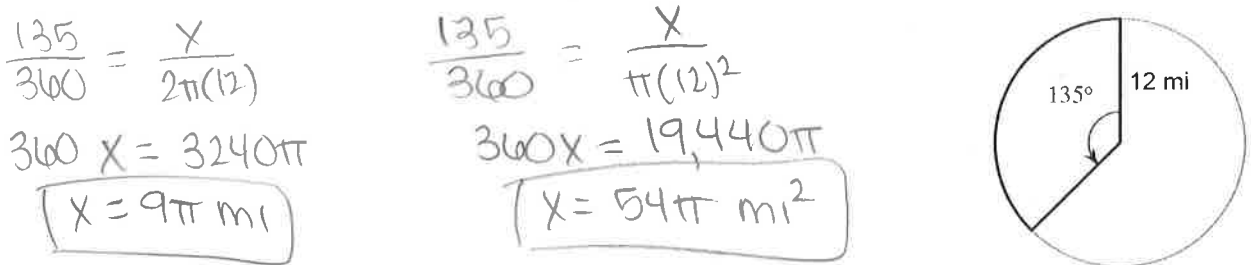 135/360 = x/2π(12)
360 x = 3240π
x = 9π mi
135/360 = x/π(12)²
360x = 19,440π
x = 54π mi²
135°
12 mi